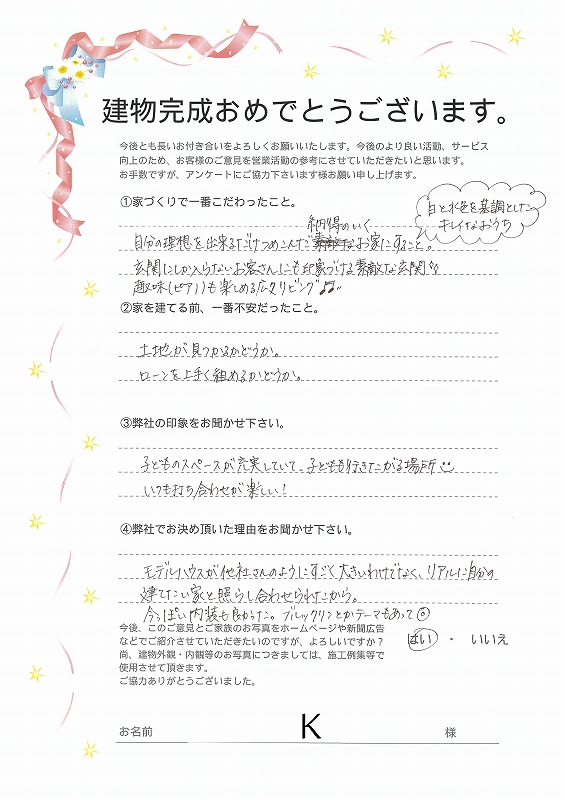 建物完成おめでとうございます。
今後とも長いお付き合いをよろしくお願いいたします。今後のより良い活動、サービス
向上のため、お客様のご意見を営業活動の参考にさせていただきたいと思います。
お手数ですが、アンケートにご協力下さいます様お願い申し上げます。
①家づくりで一番こだわったこと。
白と水色を基調とした
キレイなおうち
納得のいく
自分の理想を出来るだけつめこんだ素敵なお家にすること。
玄関にしか入らないお客さんにも印象づける素敵な玄関!!
趣味(ピアノ)も楽しめる広々リビング♪♫
②家を建てる前、一番不安だったこと。
土地が見つかるかどうか。
ローンを上手く組めるかどうか。
③弊社の印象をお聞かせ下さい。
子どものスペースが充実していて、子どもも行きたがる場所
いつも打ち合わせが楽しい!
④弊社でお決め頂いた理由をお聞かせ下さい。
モデルハウスが他社さんのようにすごく大きいわけでなく、リアルに自分の
建てたい家と照らし合わせられたから。
今っぽい内装も良かった。ブルックリンとかテーマもあって◎
今後、このご意見とご家族のお写真をホームページや新聞広告
などでご紹介させていただきたいのですが、よろしいですか?
はい ・ いいえ
尚、建物外観・内観等のお写真につきましては、施工例集等で
使用させて頂きます。
ご協力ありがとうございました。
お名前 K 様